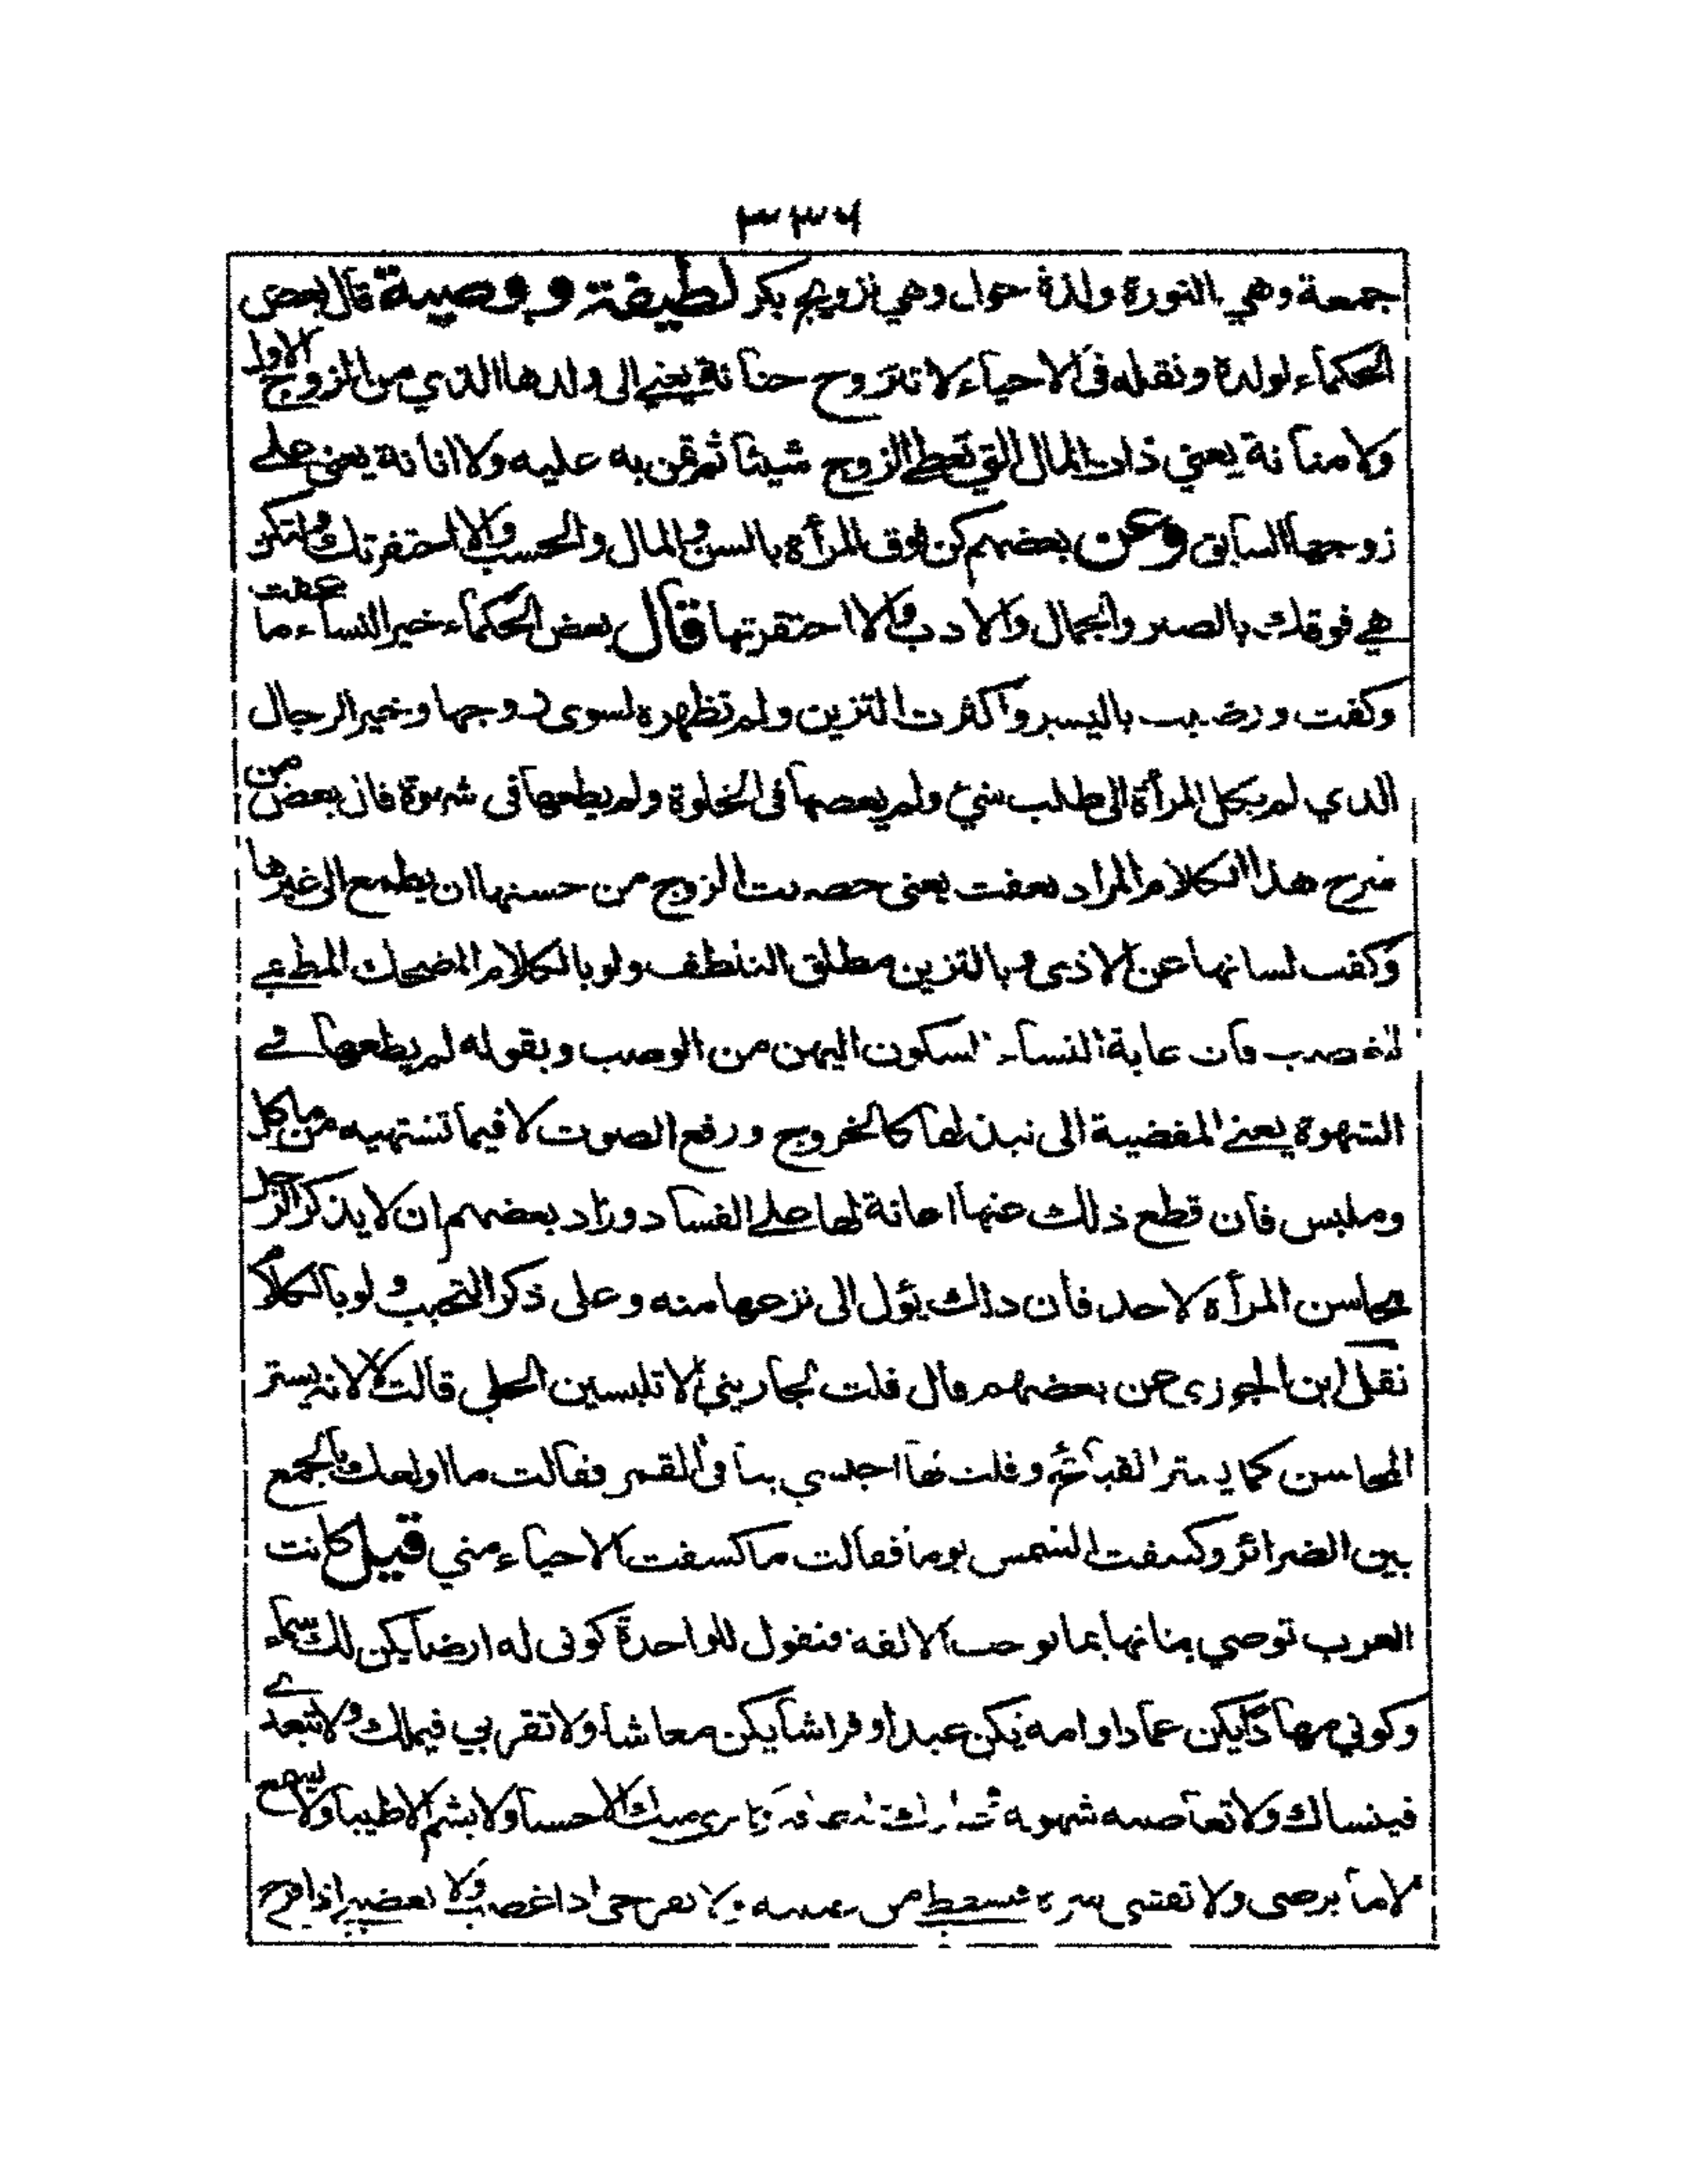 ٣٣٦
جمعة وهي بالنورة ولذة حول وهي تزويج بكر لطيفة ووصية قال بعض
الحكماء لولدة ونقله في الاحياء لا تتزوج حنانة يعني الى ولدها الذي من الزوج الاول
ولا منانة يعني ذات المال التي تعطي الزوج شيئا ثم تمن به عليه ولا انانة يعني على
زوجها السابق وعن بعضهم كن فوق المرأة بالسن والمال والحسب والا احتقرتك ولتكن
هي فوقك بالصبر والجمال والادب والا احتقرتها قال بعض الحكماء خير النساء ما عفت
وكفت ورضيت باليسير واكثرت التزين ولم تظهره لسوى زوجها وخير الرجال
الذي لم يكل المرأة الى طلب شيء ولم يعصها في الخلوة ولم يطعها في شهوة قال بعض من
شرح هذا الكلام المراد بعفت يعني حصنت الزوج من حسنها ان يطمع الى غيرها
وكفت لسانها عن الاذى وبالتزين مطلق التلطف ولو بالكلام المضحك المطفي
للغضب فان غاية النساء السكون اليهن من الوصب وبقوله لم يطعها في
الشهوة يعني المفضية الى نبذ لها كالخروج ورفع الصوت لا فيما تشتهيه من ماكل
وملبس فان قطع ذلك عنها اعانة لها على الفساد وزاد بعضهم ان لا يذكر الرجل
محاسن المرأة لاحد فان ذلك يؤل الى نزعها منه وعلى ذكر التحبب ولو بالكلام
نقل ابن الجوزي عن بعضهم قال قلت لجاريتي الا تلبسين الحلي قالت لا لانه يستر
المحاسن كما يستر القبائح وقلت لها اجلسي بنا في القمر فقالت ما اولعك بالجمع
بين الضرائر وكسفت الشمس يوما فقالت ما كسفت الا حياء مني قيل كانت
العرب توصي بناتها بما يوجب الالفة فتقول للواحدة كوني له ارضا يكن لك سماء
وكوني مهادا يكن عمادا وامه يكن عبدا وفراشا يكن معاشا ولا تقربي فيملك ولا تبعدي
فينساك ولا تعاصيه شهوة منك الا حسنا ولا يشم الا طيبا ولا يسمع
الا ما يرضى ولا تفشي سره فتسقطي من عينه ولا تفرحي اذا غضب ولا تغضبي اذا فرح